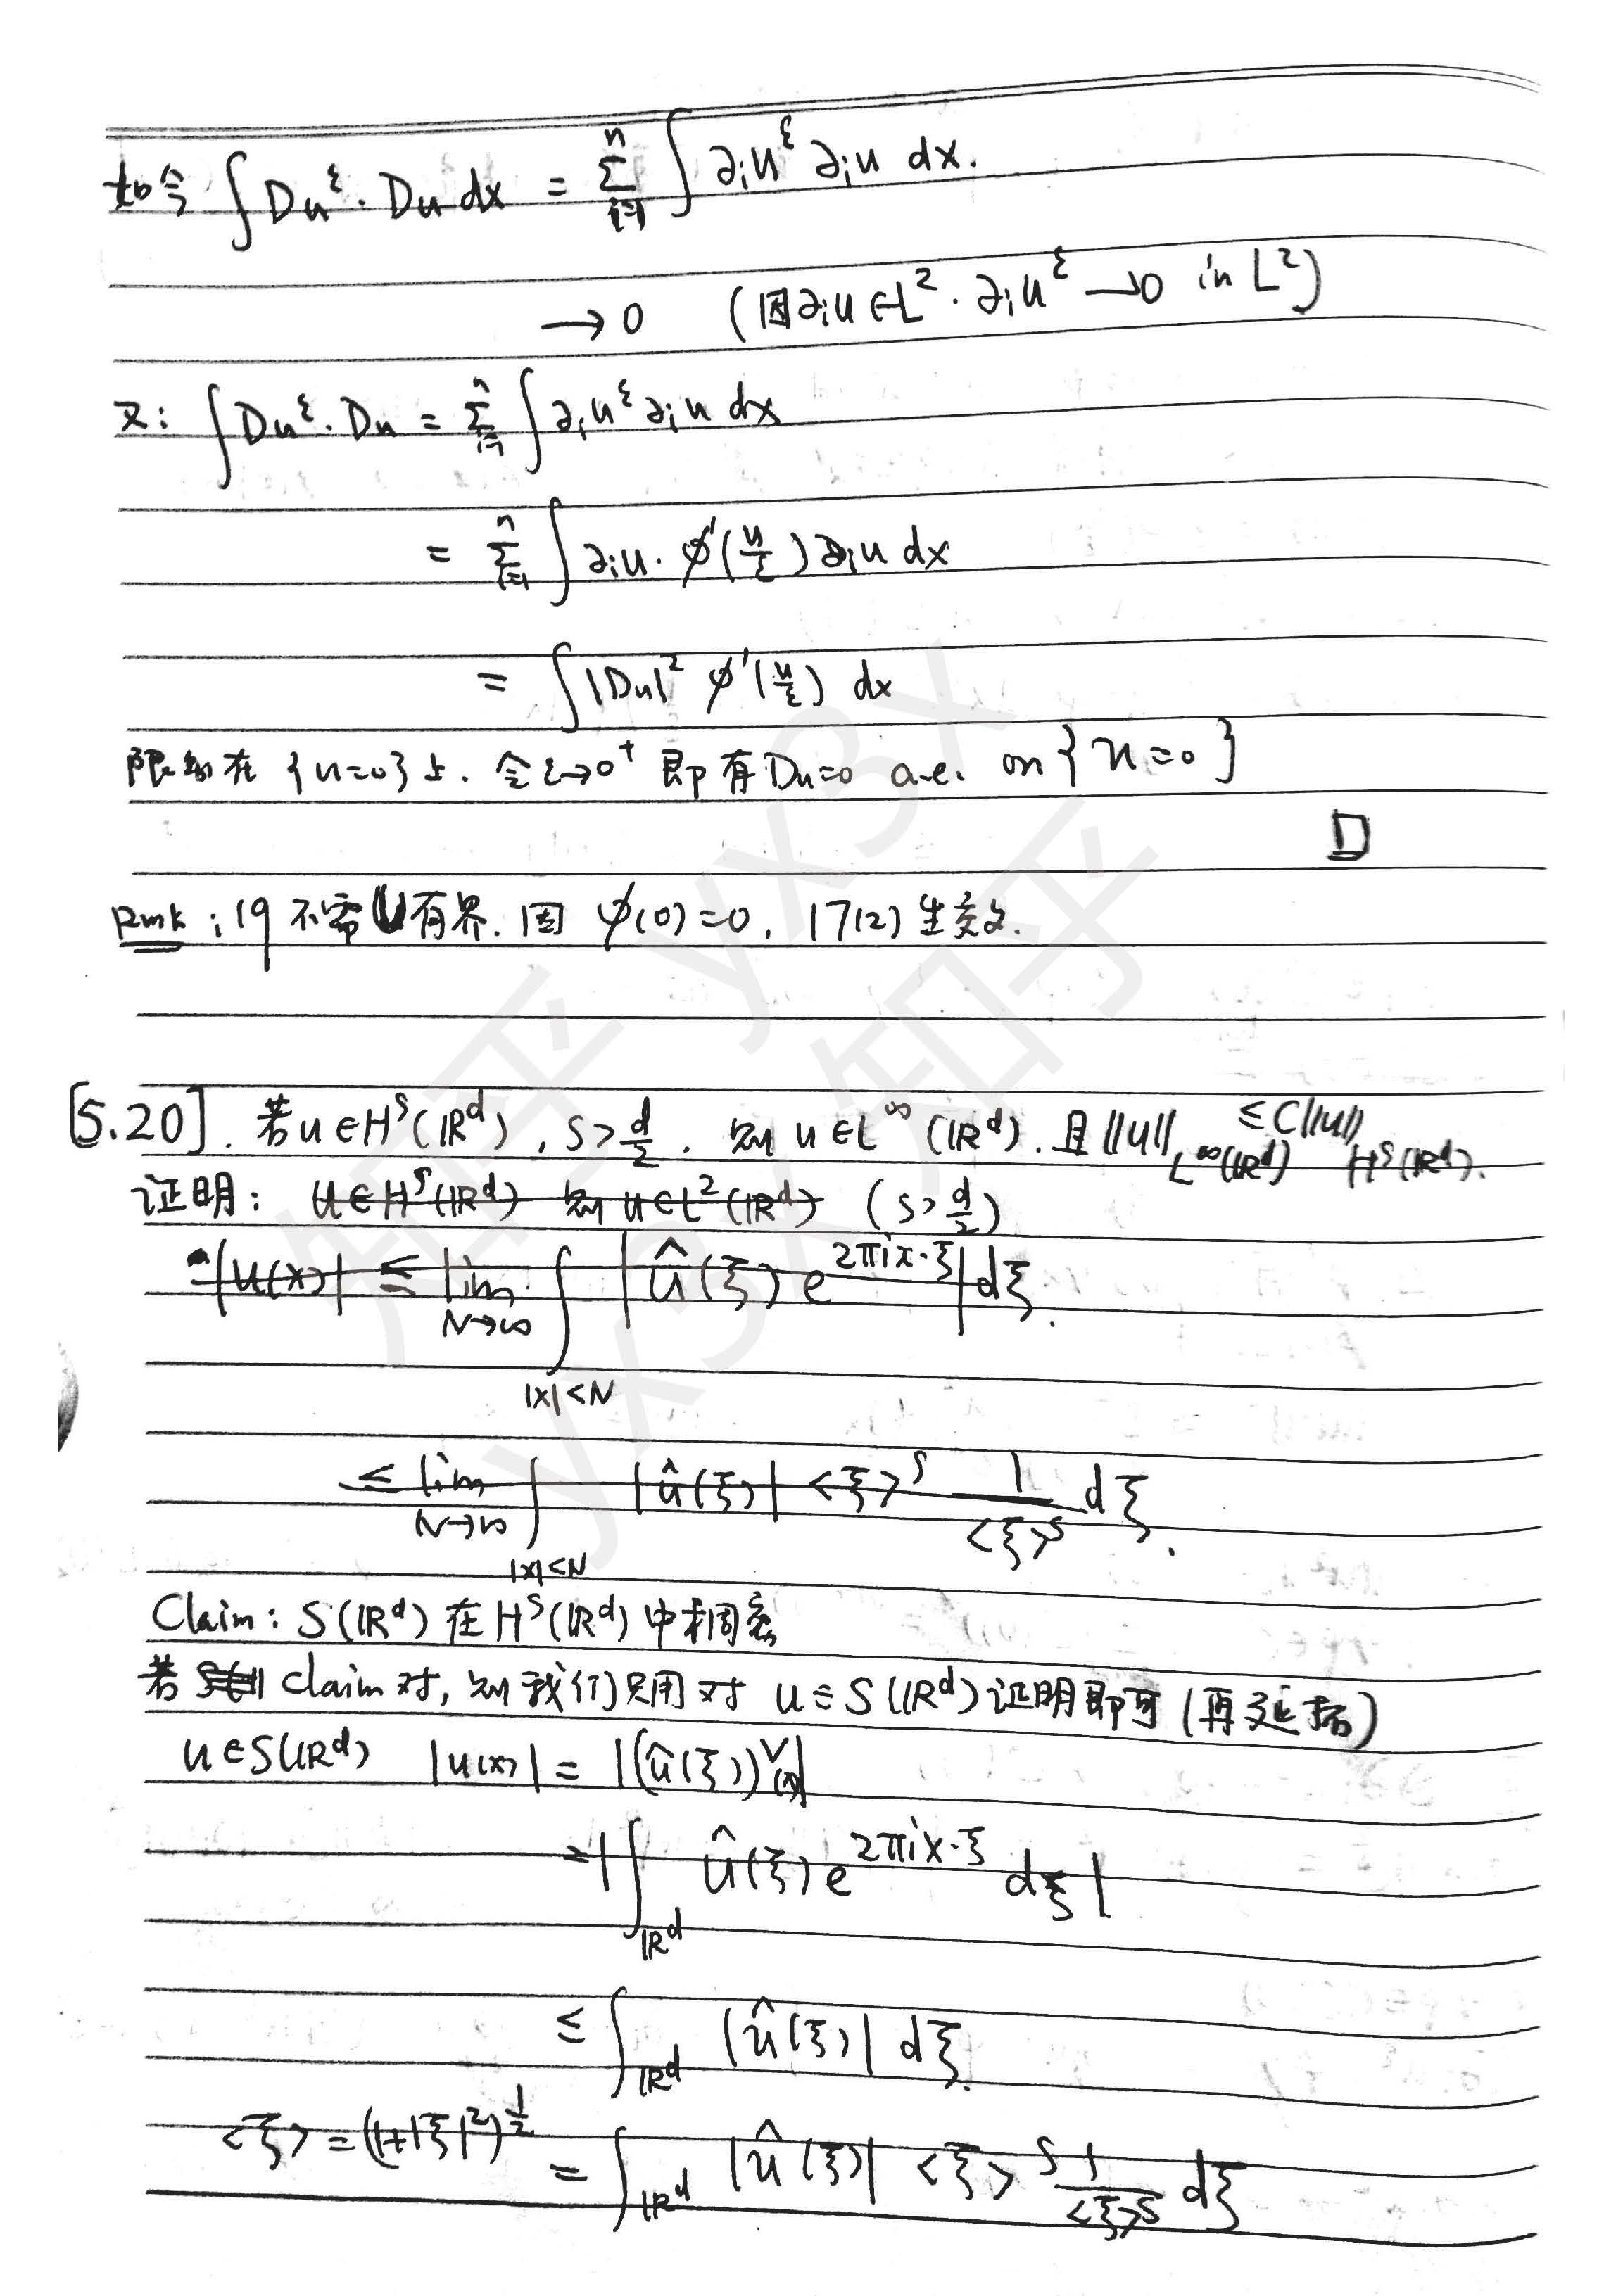 如今 ∫Du^ε · Du dx = Σ_{i=1}^n ∫ ∂_i u^ε ∂_i u dx.
→ 0 (因 ∂_i u ∈ L^2 · ∂_i u^ε → 0 in L^2)
又: ∫Du^ε · Du = Σ_{i=1}^n ∫ ∂_i u^ε ∂_i u dx
= Σ_{i=1}^n ∫ ∂_i u · φ'(u/ε) ∂_i u dx
= ∫ |Du|^2 φ'(u/ε) dx
限制在 {u=0} 上. 令 ε→0^+ 即有 Du=0 a.e. on {u=0}
□
Rmk: 19 不需 U 有界. 因 φ(0)=0, 17(2) 生效.
[5.20]. 若 u∈H^s(ℝ^d), s>d/2. 则 u∈L^∞(ℝ^d). 且 ||u||_{L^∞(ℝ^d)} ≤ C||u||_{H^s(ℝ^d)}.
证明: u∈H^s(ℝ^d) 则 u∈L^2(ℝ^d) (s>d/2)
|u(x)| ≤ lim_{N→∞} ∫_{|x|<N} |û(ξ) e^{2πix·ξ}| dξ.
≤ lim_{N→∞} ∫_{|x|<N} |û(ξ)| <ξ>^s 1/<ξ>^s dξ.
Claim: S(ℝ^d) 在 H^s(ℝ^d) 中稠密
若 claim 对, 则我们只用对 u∈S(ℝ^d) 证明即可 (再延拓)
u∈S(ℝ^d) |u(x)| = |(û(ξ))^∨(x)|
=|∫_{ℝ^d} û(ξ) e^{2πix·ξ} dξ|
≤ ∫_{ℝ^d} |û(ξ)| dξ.
<ξ> = (1+|ξ|^2)^{1/2} = ∫_{ℝ^d} |û(ξ)| <ξ>^s 1/<ξ>^s dξ
知乎 yx3x
yx3x 知乎